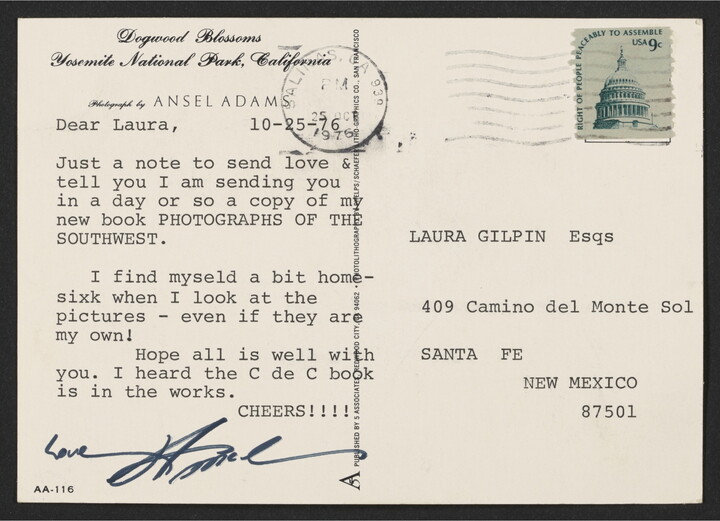 Dogwood Blossoms
Yosemite National Park, California
Photograph by ANSEL ADAMS
Dear Laura, 10-25-76
Just a note to send love &
tell you I am sending you
in a day or so a copy of my
new book PHOTOGRAPHS OF THE
SOUTHWEST.
I find myseld a bit home-
sixk when I look at the
pictures - even if they are
my own!
Hope all is well with
you. I heard the C de C book
is in the works.
CHEERS!!!!
Love Ansel
AA-116
PUBLISHED BY 5 ASSOCIATES, REDWOOD CITY, CA 94062 • PHOTOLITHOGRAPHS BY PHELPS/SCHAEFER LITHO-GRAPHICS CO., SAN FRANCISCO
SALINAS, CA 939
PM
25 OCT
1976
RIGHT OF PEOPLE PEACEABLY TO ASSEMBLE
USA 9c
LAURA GILPIN Esqs
409 Camino del Monte Sol
SANTA FE
NEW MEXICO
87501